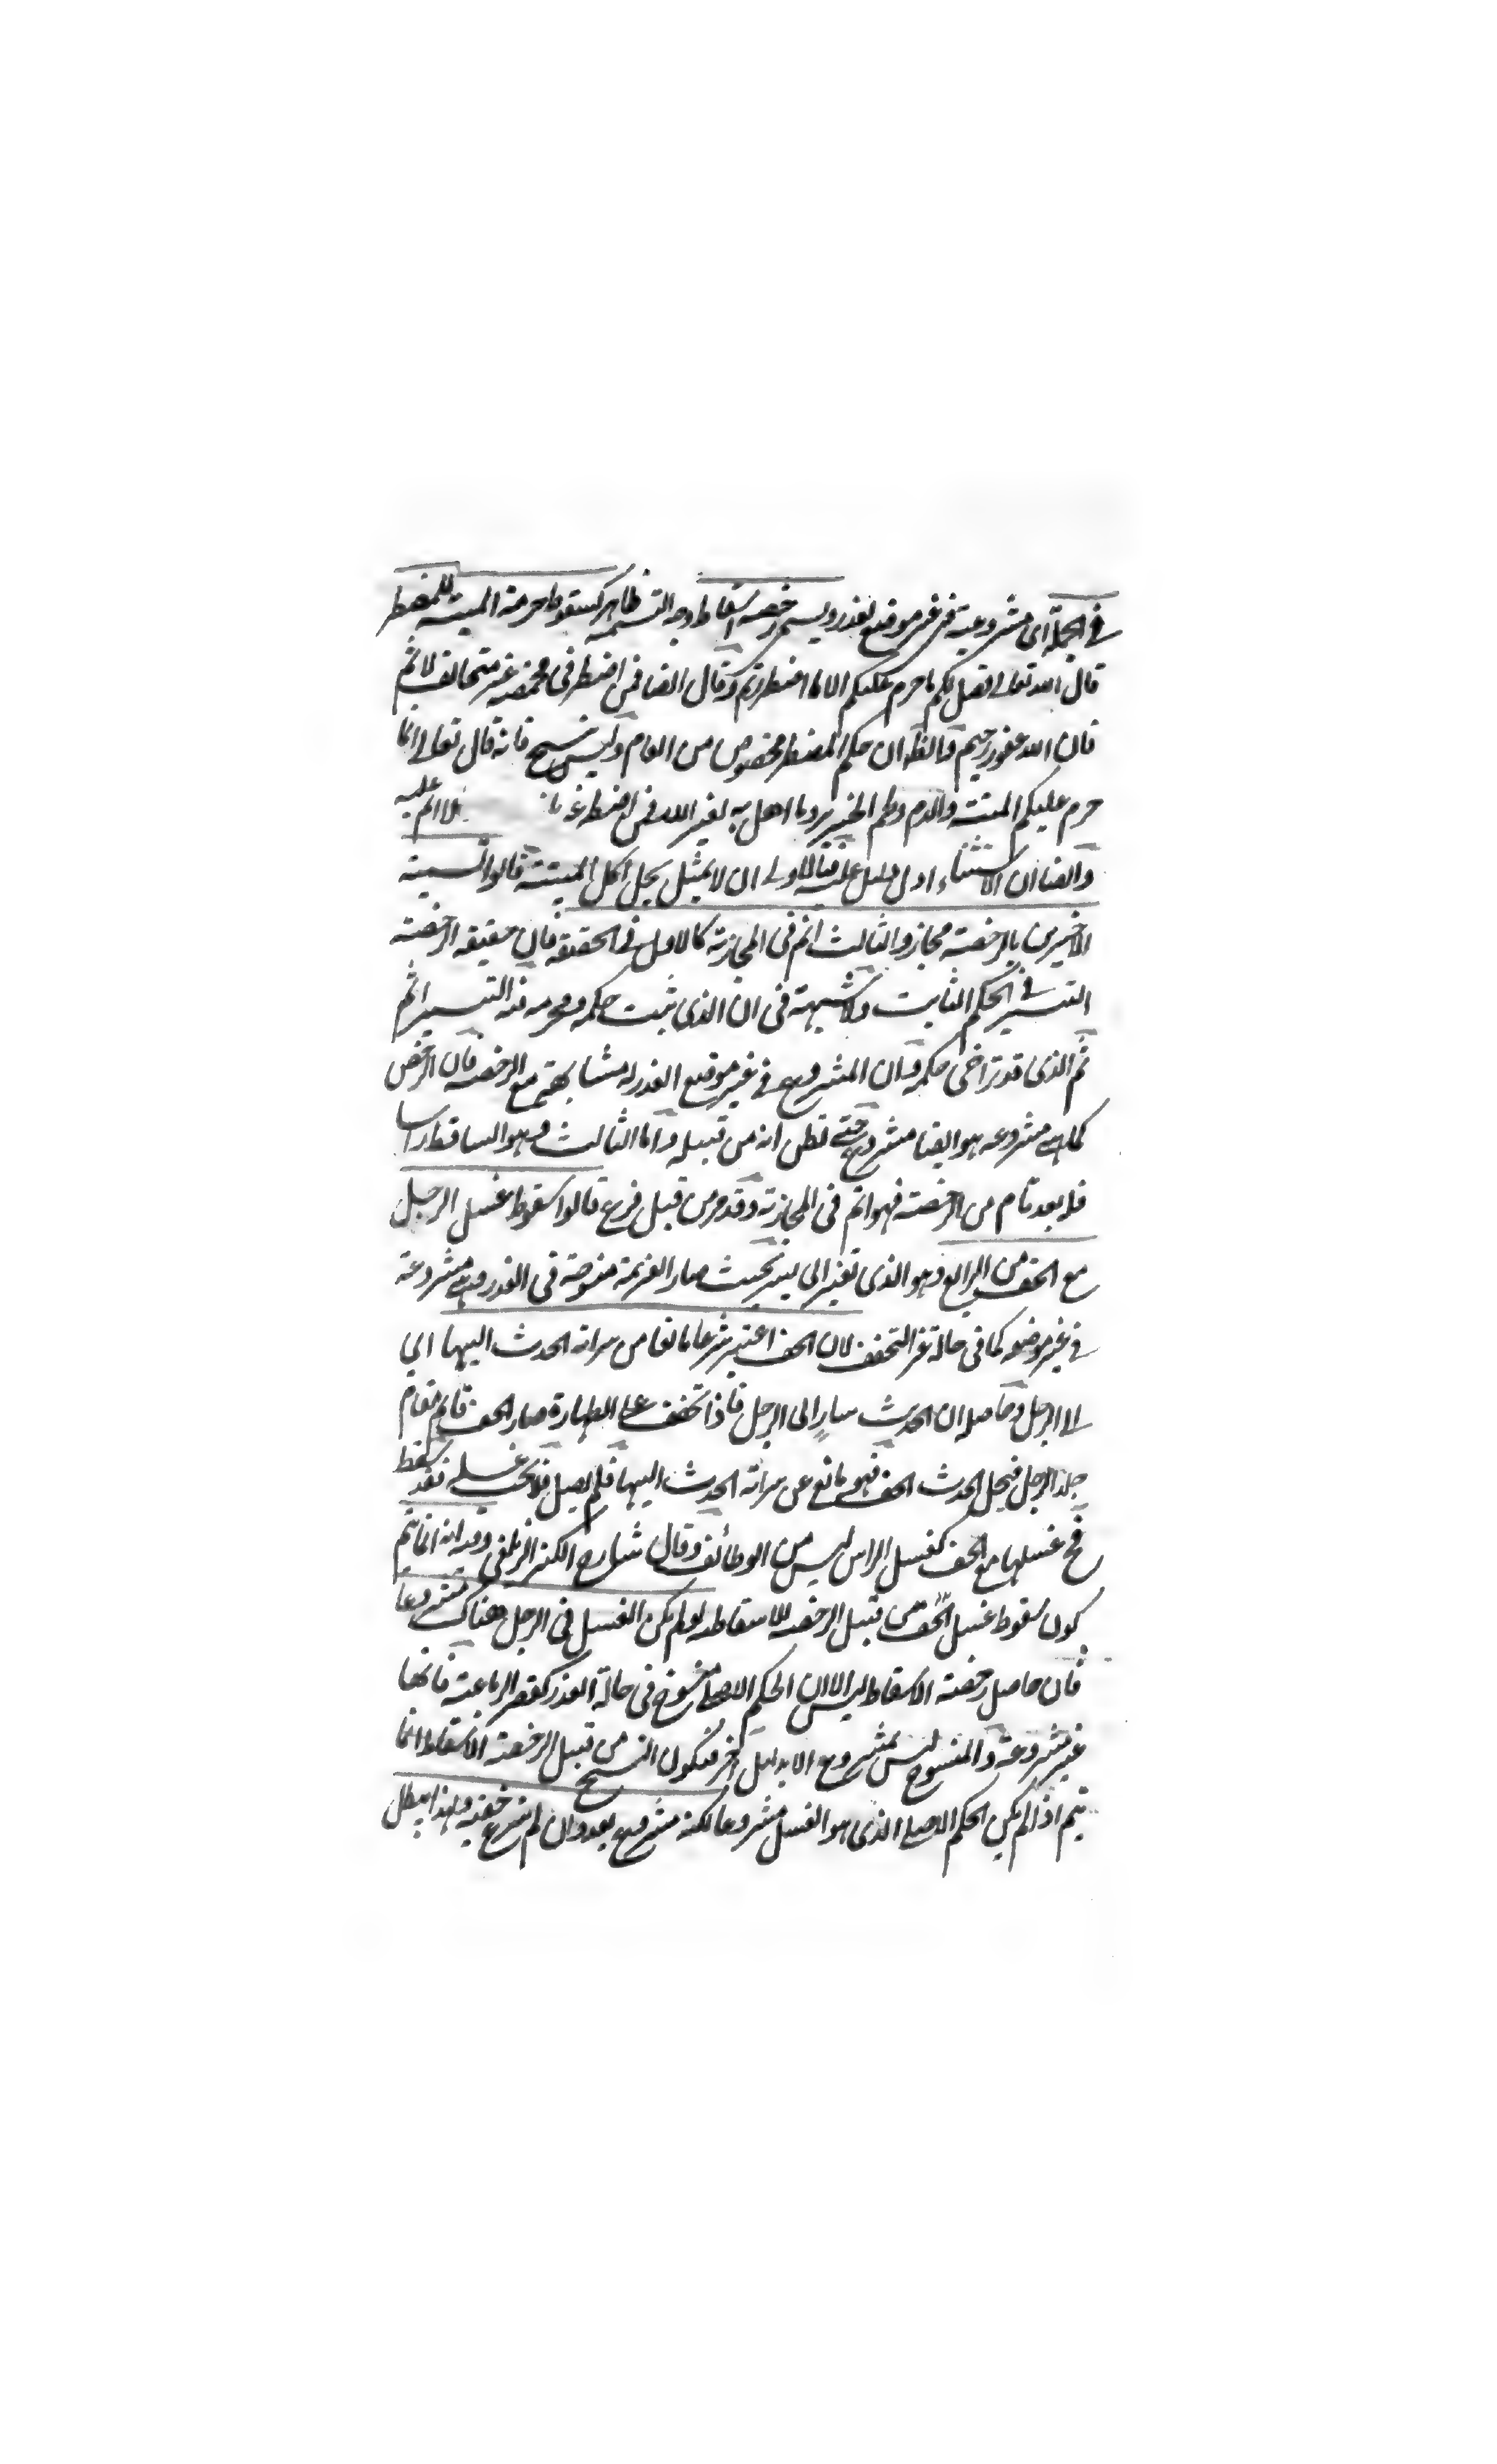 في الجملة اى مشروعية فى غير موقع العذر ويسمى رخصة اسقاط وجه التسمية ظاهر كسقوط حرمة الميتة للمضطر
قال الله تعالى فصل لكم ما حرم عليكم الا ما اضطررتم وقال ايضا فمن اضطر فى مخمصة غير متجانف لاثم
فان الله غفور رحيم والظ ان حكم المضطر مخصوص من العام وليس بنسخ فانه قال تعالى انما
حرم عليكم الميتة والدم ولحم الخنزير وما اهل به لغير الله فمن اضطر غير باغ فلا اثم عليه
وايضا ان الاستثناء ادل دليل عليه فالاولى ان لا يمثل بحل اكل الميتة قالوا تسمية
الاخيرين بالرخصة مجاز والثالث اتم فى المجازية كالاول فى الحقيقة فان حقيقة الرخصة
التيسير فى الحكم الثابت ولا شبهة فى ان الذى ثبت حكمه ومحرمه فيه التيسير اتم
ثم الذى قد تراخى حكمه وان المشروع فى غير موقع العذر له مشابهة مع الرخصة فان الرخص
كما هى مشروعة هو ايضا مشروع حتى يظن انه من قبيله واما الثالث وهو الساقط راسا
فلا بعد تام من الرخصة فهو اتم فى المجازية وقد مر من قبل فرع قالوا سقوط غسل الرجل
مع الخف من الرابع وهو الذى تغير الى يسر بحيث صار العزيمة منسوخة فى العذر وهى مشروعة
فى غير موضعه كما فى حالة غير التخفف لان الخف اعتبر شرعا مانعا من سراية الحدث اليها اى
الى الرجل وحاصله ان الحدث سارٍ الى الرجل فاذا تخفف على الطهارة صار الخف قائم مقام
جلد الرجل فيحل الحدث الخف فهو مانع عن سراية الحدث اليها فلم يصل فلا يجب غسله فقد سقط
فح غسلها مع الخف كغسل الراس ليس من الوظائف وقال شارح الكنز الزيلعى وفيه انه انما يتم
كون سقوط غسل الخف من قبيل الرخصة للاسقاط لو لم يكن الغسل فى الرجل هناك مشروعا
فان حاصل رخصة الاسقاط ليس الا ان الحكم الاصلى منسوخ فى حالة العذر كقصر الرباعية فانها
غير مشروعة والمنسوخ ليس بمشروع الا بدليل آخر فيكون النسخ من قبيل الرخصة الاسقاط انما
يتم اذا لم يكن الحكم الاصلى الذى هو الغسل مشروعا لكنه مشروع بعد وان لم ينزع خفيه ولهذا يبطل